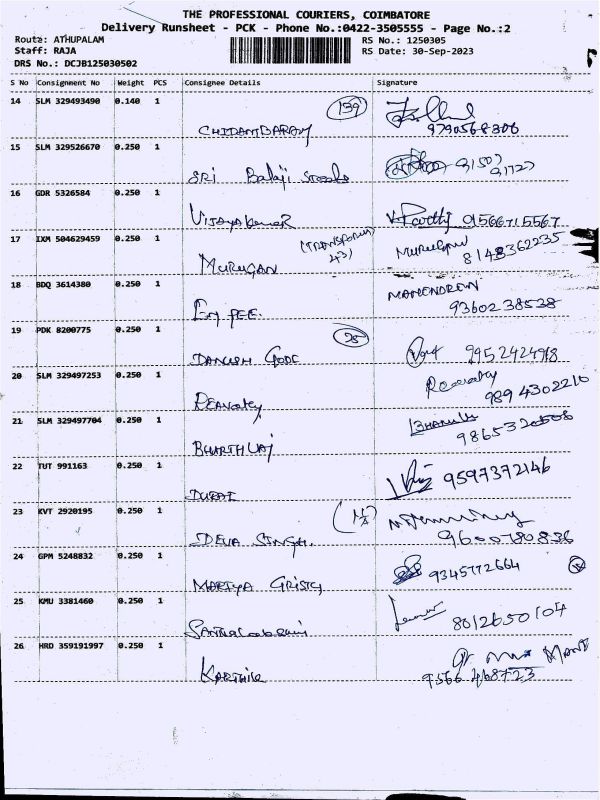 THE PROFESSIONAL COURIERS, COIMBATORE
Delivery Runsheet - PCK - Phone No.:0422-3505555 - Page No.:2
Route: ATHUPALAM RS No.: 1250305
Staff: RAJA RS Date: 30-Sep-2023
DRS No.: DCJB125030502
S No Consignment No Weight PCS Consignee Details Signature
14 SLM 329493490 0.140 1 139
CHIDAMBARAM 9790568306
15 SLM 329526670 0.250 1
SRI Balaji Steels
16 GDR 5326584 0.250 1
VIJAYAKUMAR 9566715567
17 IXM 504629459 0.250 1 (TRANSFORM 43) MURUGAN
MURUGAN 8148362235
18 BDQ 3614380 0.250 1 MAHENDREN
Em PEE. 9360238538
19 PDK 8200775 0.250 1
DANUSH GODE 9952424918
20 SLM 329497253 0.250 1
REAVATHY 9894302210
21 SLM 329497704 0.250 1
BHARTHVAJ 9865320508
22 TUT 991163 0.250 1 9597372146
DURAI
23 KVT 2920195 0.250 1
JDEVA SINGH. 9600780836
24 GPM 5248832 0.250 1 9345772664
MARIYA CRISTY
25 KMU 3381460 0.250 1
8012650104
26 HRD 359191997 0.250 1
KARTHIK 9566 468723